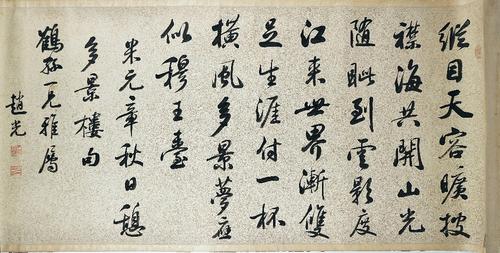 縱目天容曠披
襟海共開山光
隨眺到雲影度
江來世界漸雙
足生涯付一杯
橫風多景夢應
似穆王臺
米元章秋日憩
多景樓句
鶴 一兄雅屬
趙光